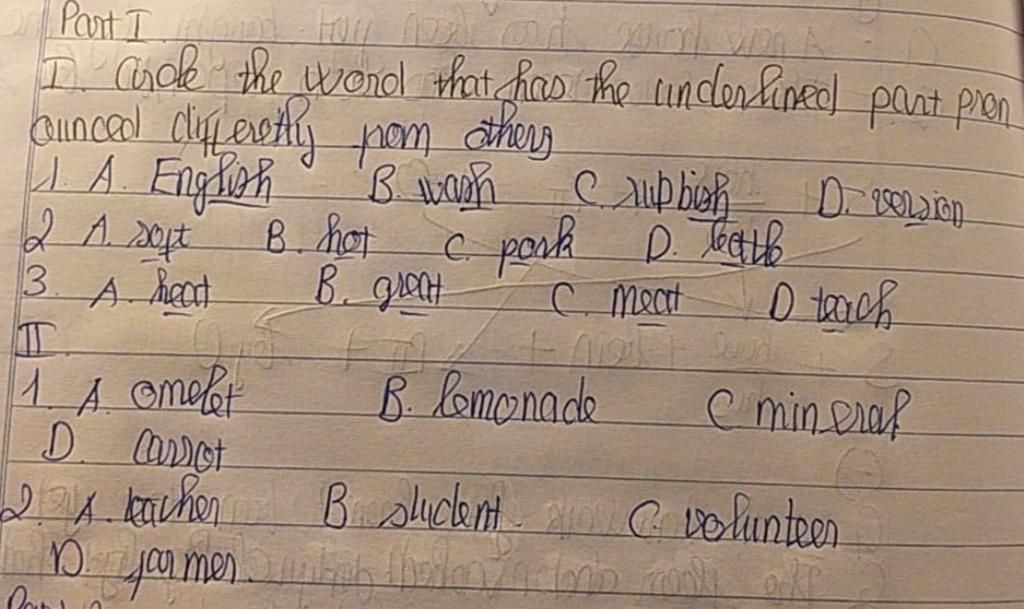 Part I
I. Circle the word that has the underlined part pron
ounced differently from others
1. A. English B. wash C. rubbish D. version
2 A. soft B. hot C. pork D.
3. A. heat B. great C. meat D teach
II
1. A. omelet B. lemonade C mineral
D. carrot
2. A. teacher B student. C. volunteer
D. farmer.